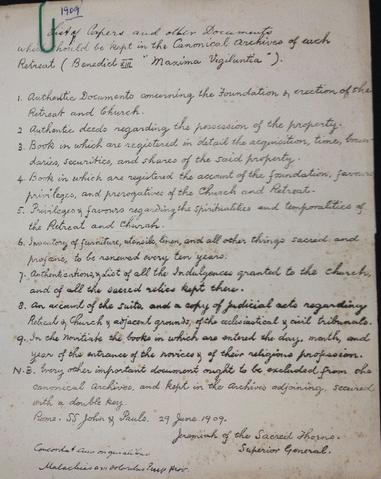 1909
List of Papers and other Documents
which should be kept in the Canonical Archives of each
Retreat (Benedict XIII "Maxima Vigilantia").
1. Authentic Documents concerning the Foundation & erection of the
Retreat and Church.
2 Authentic deeds regarding the possession of the property.
3. Book in which are registered in detail the acquisition, times, boun-
daries, securities, and shares of the said property.
4. Book in which are registered the account of the foundation, favours
privileges, and prerogatives of the Church and Retreat.
5. Privileges & favours regarding the spiritualities and temporalities of
the Retreat and Church.
6. Inventory of furniture, utensils, linen, and all other things sacred and
profane, to be renewed every ten years.
7. Authentications & List of all the Indulgences granted to the Church,
and of all the sacred relics kept there.
8. An account of the suits, and a copy of judicial acts regarding
Retreat & Church & adjacent grounds, of the ecclesiastical & civil tribunals.
9. In the Novitiate the books in which are entered the day, month, and
year of the entrance of the novices & of their religious profession.
N.B. Every other important document ought to be excluded from the
canonical Archives, and kept in the Archives adjoining, secured
with a double key.
Rome. SS John & Paul. 29 June 1909.
Jeremiah of the Sacred Thorns.
Superior General.
Concordat cum originali
Malachias a